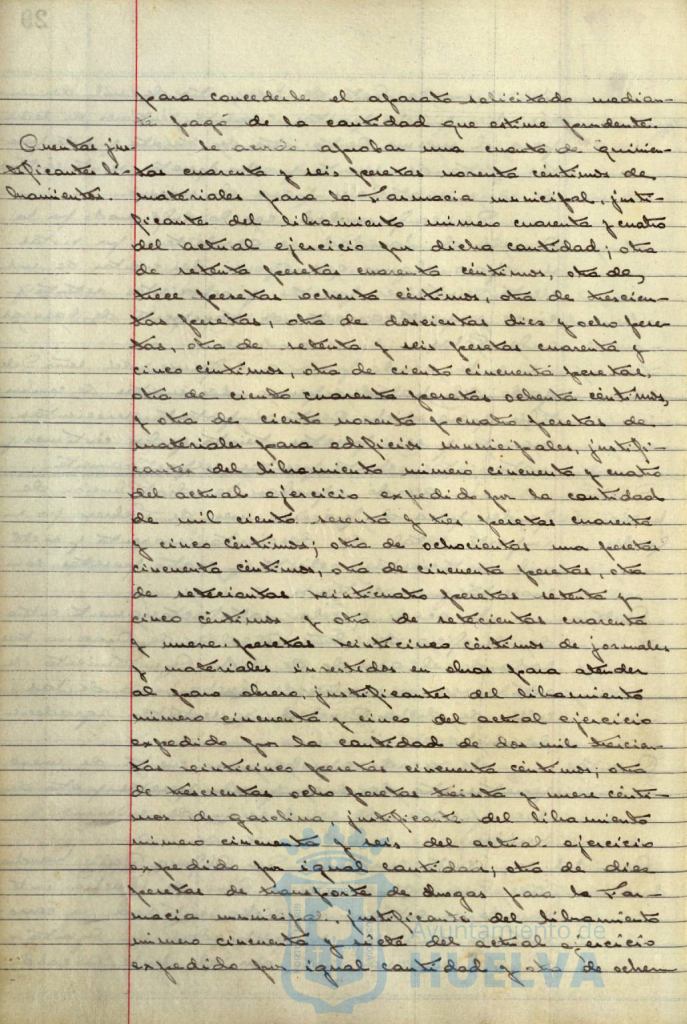 29
para concederle el aparato solicitado median-
te pagó de la cantidad que estime prudente.
Cuentas jus-
tificantes li-
bramientos.
Se acordó aprobar una cuenta de quinien-
tas cuarenta y seis pesetas noventa céntimos de
materiales para la Farmacia municipal, justi-
ficante del libramiento número cuarenta y cuatro
del actual ejercicio por dicha cantidad; otra
de setenta pesetas cuarenta céntimos, otra de
trece pesetas ochenta céntimos, otra de trescien-
tas pesetas, otra de doscientas diez y ocho pese-
tas, otra de setenta y seis pesetas cuarenta y
cinco céntimos, otra de ciento cincuenta pesetas,
otra de ciento cuarenta pesetas ochenta céntimos,
y otra de ciento noventa y cuatro pesetas de
materiales para edificios municipales, justifi-
cantes del libramiento número cincuenta y cuatro
del actual ejercicio expedido por la cantidad
de mil ciento sesenta y tres pesetas cuarenta
y cinco céntimos; otra de ochocientas una pesetas
cincuenta céntimos, otra de cincuenta pesetas, otra
de setecientas veinticuatro pesetas setenta y
cinco céntimos y otra de setecientas cuarenta
y nueve pesetas veinticinco céntimos de jornales
y materiales invertidos en obras para atender
al paro obrero, justificantes del libramiento
número cincuenta y cinco del actual ejercicio
expedido por la cantidad de dos mil trescien-
tas veinticinco pesetas cincuenta céntimos; otra
de trescientas ocho pesetas treinta y nueve cénti-
mos de gasolina, justificante del libramiento
número cincuenta y seis del actual ejercicio
expedido por igual cantidad; otra de diez
pesetas de transporte de drogas para la Far-
macia municipal, justificante del libramiento
número cincuenta y siete del actual ejercicio
expedido por igual cantidad y otra de ochen
Ayuntamiento de
HUELVA